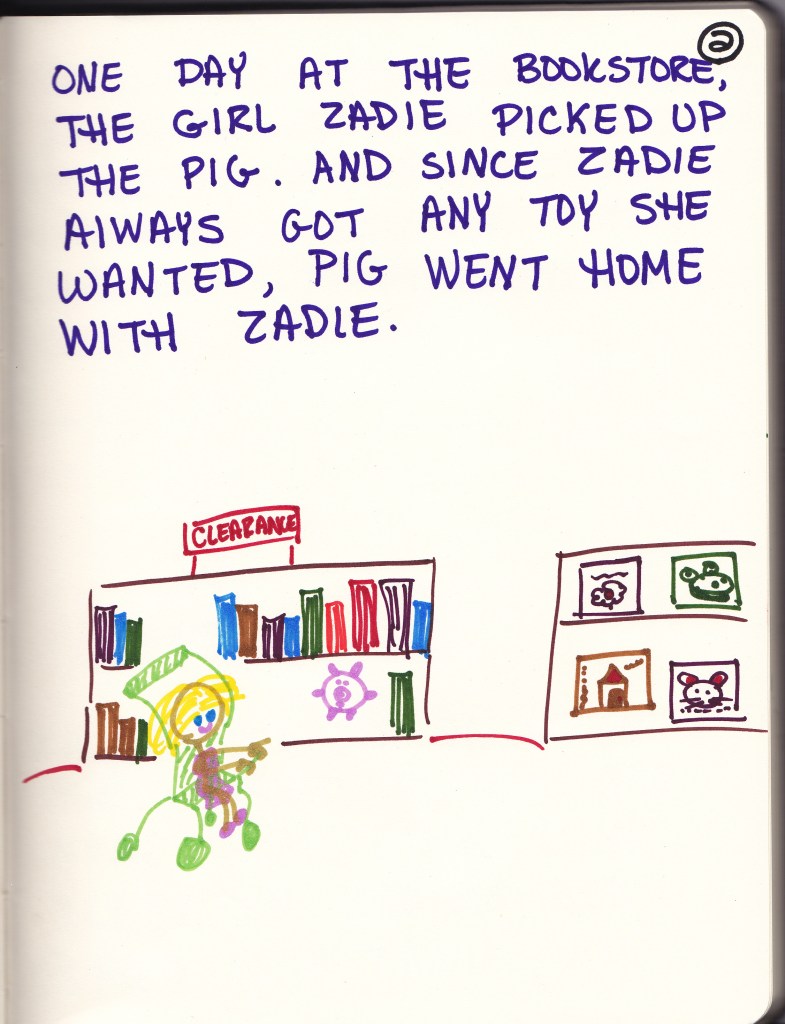 2
ONE DAY AT THE BOOKSTORE,
THE GIRL ZADIE PICKED UP
THE PIG. AND SINCE ZADIE
AlWAYS GOT ANY TOY SHE
WANTED, PIG WENT HOME
WITH ZADIE.
CLEARANCE